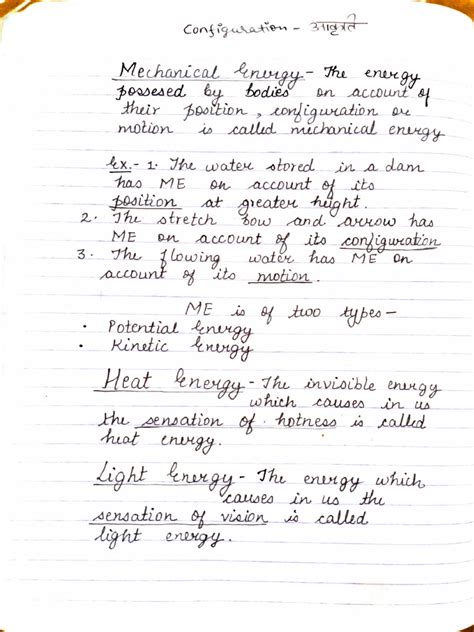 Configuration - आकृति
Mechanical Energy - The energy
possesed by bodies on account of
their position, configuration or
motion is called mechanical energy
Ex.- 1. The water stored in a dam
has ME on account of its
position at greater height.
2. The stretch bow and arrow has
ME on account of its configuration
3. The flowing water has ME on
account of its motion.
ME is of two types-
• Potential Energy
• Kinetic Energy
Heat Energy - The invisible energy
which causes in us
the sensation of hotness is called
heat energy.
Light Energy - The energy which
causes in us the
sensation of vision is called
light energy.